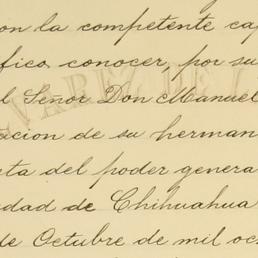 on la competente cap
ífico conocer, por su
l Señor Don Manuel
acion de su herman
sta del poder genera
dad de Chihuahua
de Octubre de mil oc